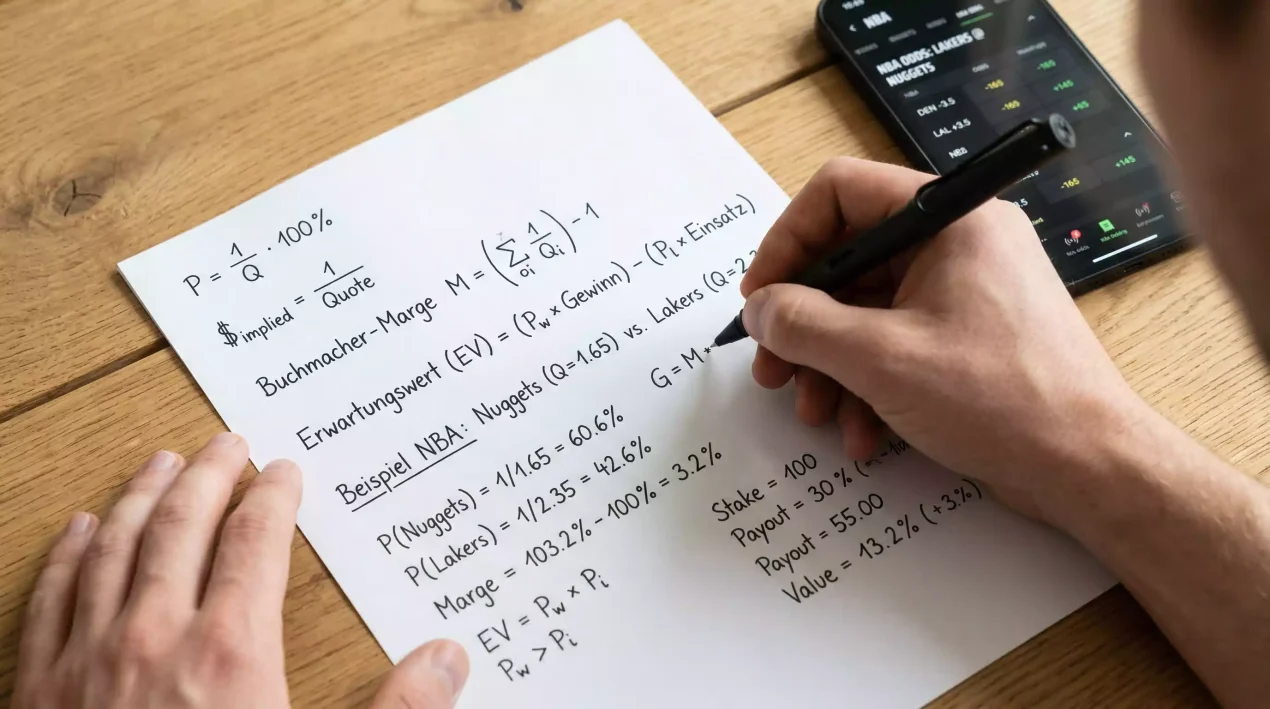 P = 1/Q · 100%
$implied = 1/Quote
Buchmacher-Marge M = (∑ 1/Qi) - 1
oi
Erwartungswert (EV) = (Pw × Gewinn) - (PL × Einsatz)
Beispiel NBA: Nuggets (Q=1.65) vs. Lakers (Q=2.
G = M *
P(Nuggets) = 1/1.65 = 60.6%
P(Lakers) = 1/2.35 = 42.6%
Marge = 103.2% - 100% = 3.2%
EV = Pw × Pi
Pw > Pi
Stake = 100
Payout = 30%
Payout = 55.00
Value = 13.2% (+3.%)
NBA
NBA ODDS: LAKERS @
NUGGETS
DEN -3.5 -165 -165
LAL +3.5 -165 +145
NBA
-165 +145